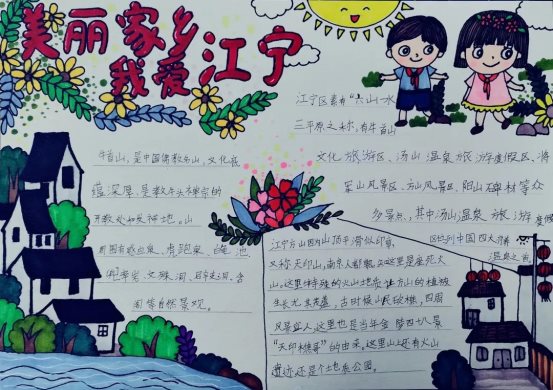 美丽家乡
我爱江宁
牛首山,是中国佛教名山,文化底
蕴深厚,是教牛头禅宗的
开教处和发祥地。山
周围有感应泉、虎跑泉、
洞、文殊洞、含
自然景观。
江宁区素有"六山一水
三平原之称,有牛首山
文化旅游区、汤山温泉旅游度假区、将
军山风景区、方山风景区、阳山碑材等众
多景点,其中汤山温泉旅游度假
区位列中国四大
温泉之
江宁方山四四山顶平滑似印章,
又称天印山,南京人都
这里是座死火
山。这里特殊的火山地
方山的植被
生长尤
古时候山
四周
风景宜人,这里也是当年金陵四十八景
"天印樵歌"的由来。这里山上还有火山
遗迹还是个地质公园。